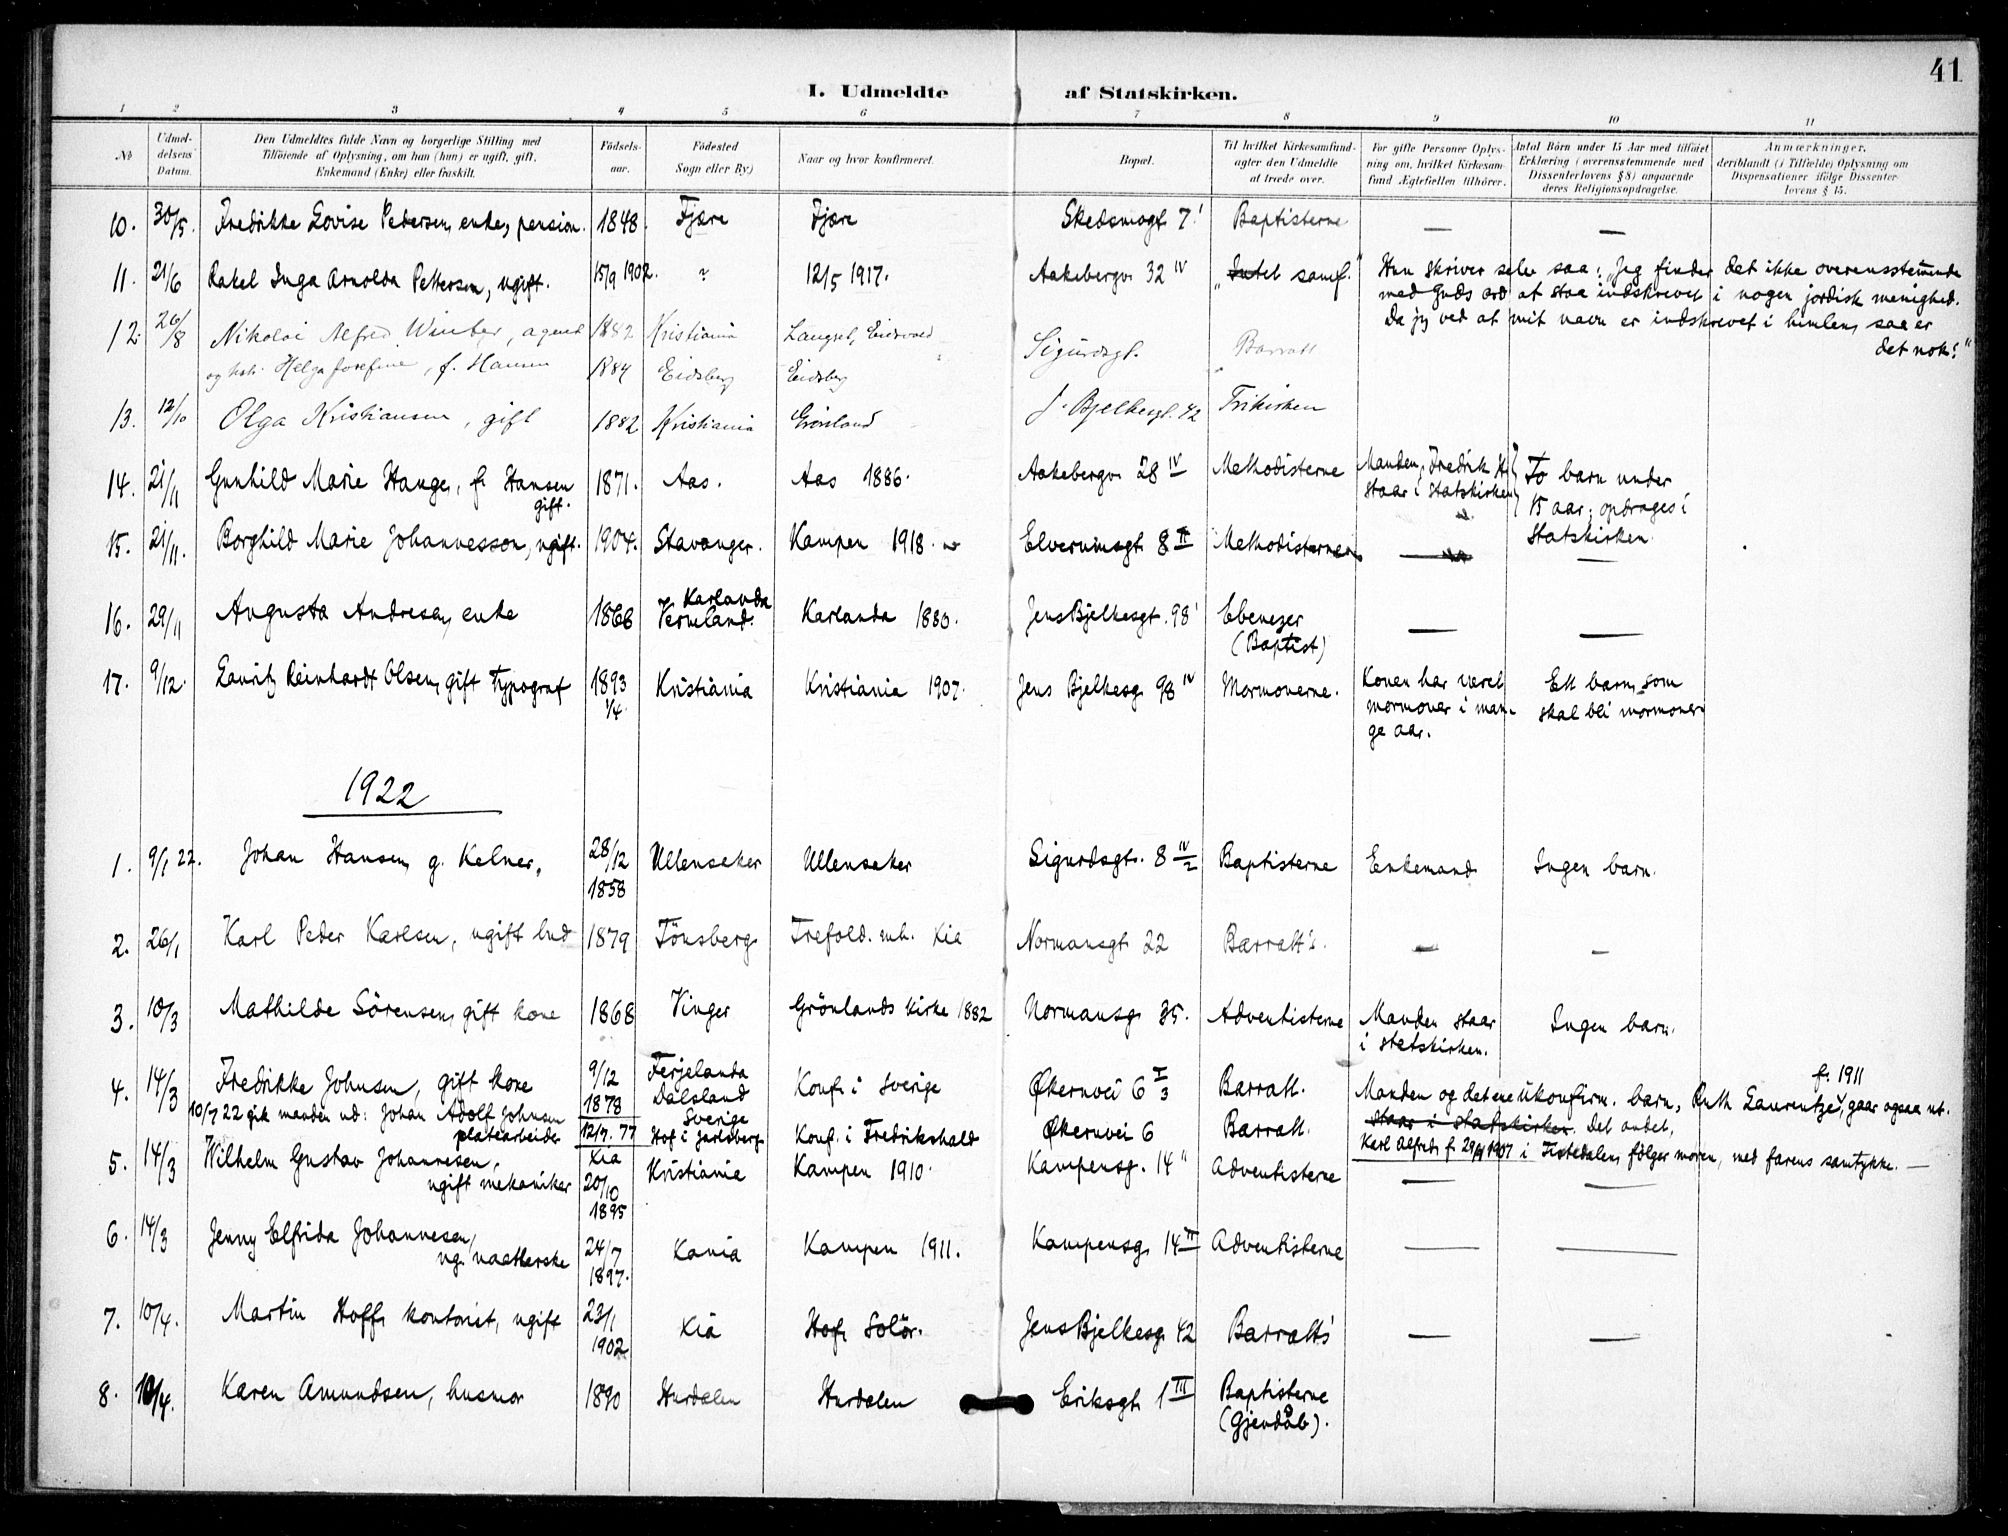 41
I. Udmeldte af Statskirken.
1 2 3 4 5 6 7 8 9 10 11
№
Udmel-
delsens
Datum.
Den Udmeldtes fulde Navn og borgerlige Stilling med
Tilföiende af Oplysning, om han (hun) er ugift, gift,
Enkemand (Enke) eller fraskilt.
Födsels-
aar.
Födested
Sogn eller By)
Naar og hvor konfirmeret.
Bopæl.
Til hvilket Kirkesamfund-
agter den Udmeldte
at træde over.
For gifte Personer Oplys-
ning om, hvilket Kirkesam-
fund Ægtefællen tilhörer.
Antal Börn under 15 Aar med tilföiet
Erklæring (overensstemmende med
Dissenterlovens § 8) angaaende
deres Religionsopdragelse.
Anmærkninger,
deriblandt (i Tilfælde) Oplysning om
Dispensationer ifölge Dissenter
lovens § 15.
10. 30/5. Fredrikke Lovise Pedersen, enke, pension. 1848. Fjære Fjære Skedsmogt. 7 I Baptisterne — —
11. 21/6 Rakel Inga Arnolda Pettersen, ugift. 15/9 1902. ? 12/5 1917. Aakebergv. 32 IV „Intet samf." Hun skriver selv saa: „Jeg finder det ikke overensstemmende
med Guds ord at staa indskrevet i nogen jordisk menighed.
Da jeg ved at mit navn er indskrevet i himlen, saa er
det nok."
12. 26/8 Nikolai Alfred Winter, agent 1882 Kristiania Langset, Eidsvold Sigurdsgt. Barratt
og hstr. Helga Josefine, f. Hansen 1884 Eidsberg Eidsberg
13. 12/10 Olga Kristiansen, gift 1882 Kristiania Grönland J. Bjelkesgt. 42 Frikirken
14. 21/11 Gunhild Marie Hauge, f. Hansen 1871. Aas. Aas 1886. Aakebergv. 28 IV Methodisterne Manden, Fredrik H. To barn under
gift. staar i Statskirken 15 aar; opdrages i
Statskirken.
15. 21/11. Borghild Marie Johannesson, ugift. 1904. Stavanger. Kampen 1918. Elverumsgt. 8 II Methodisterne — —
16. 29/11 Augusta Andresen, enke 1866 Karlanda
Vermland. Karlanda 1880. Jens Bjelkesgt. 98 I Ebenezer
(Baptist) — —
17. 9/12. Lauritz Reinhardt Olsen, gift typograf 1893
1/4 Kristiania Kristiania 1907. Jens Bjelkesg. 98 IV Mormonerne. Konen har været Ett barn, som
mormoner i man- skal bli mormoner
ge aar.
1922
1. 9/1 22. Johan Hansen, g. Kelner, 28/12
1858 Ullensaker Ullensaker Sigurdsgt. 8 IV/2 Baptisterne Enkemand Ingen barn.
2. 26/1 Karl Peder Karlsen, ugift bud 1879 Tönsberg Trefold. mh. Kia Normansgt. 22 Barratt's. — —
3. 10/3 Mathilde Sörensen, gift kone 1868 Vinger Grönlands kirke 1882 Normansg. 35. Adventisterne Manden staar Ingen barn.
i statskirken.
4. 14/3 Fredrikke Johnsen, gift kone 9/12
1878 Ferjelanda
Dalsland
Sverige Konf. i Sverige Økernvei 6 I/3 Barratt. f. 1911
Manden og det ene ukonfirm. barn, Ruth Laurentze, gaar ogsaa ut.
10/7 22 gik manden ud: Johan Adolf Johnsen
platearbeider 12/7. 77 Hof i Jarlsberg Konf. i Fredrikshald Økernvei 6 Barratt. staar i statskirken. Det andet,
Karl Alfred, f. 29/4 1907 i Tistedalen, fölger moren, med farens samtykke. —
5. 14/3 Wilhelm Gustav Johannesen,
ugift mekaniker Kia
20/10
1895 Kristiania Kampen 1910. Kampensg. 14 II Adventisterne — —
6. 14/3 Jenny Elfrida Johannesen,
ug. naatlerske 24/7
1897. Kania Kampen 1911. Kampensg. 14 II Adventisterne — —
7. 10/4. Martin Hoff, kontorist, ugift 23/1
1902 Kia Hof, Solör. Jens Bjelkesg. 42 Barratt's — —
8. 10/4. Karen Amundsen, husmor 1890 Hurdalen Hurdalen Eriksgt. 1 III Baptisterne
(Gjendåb).